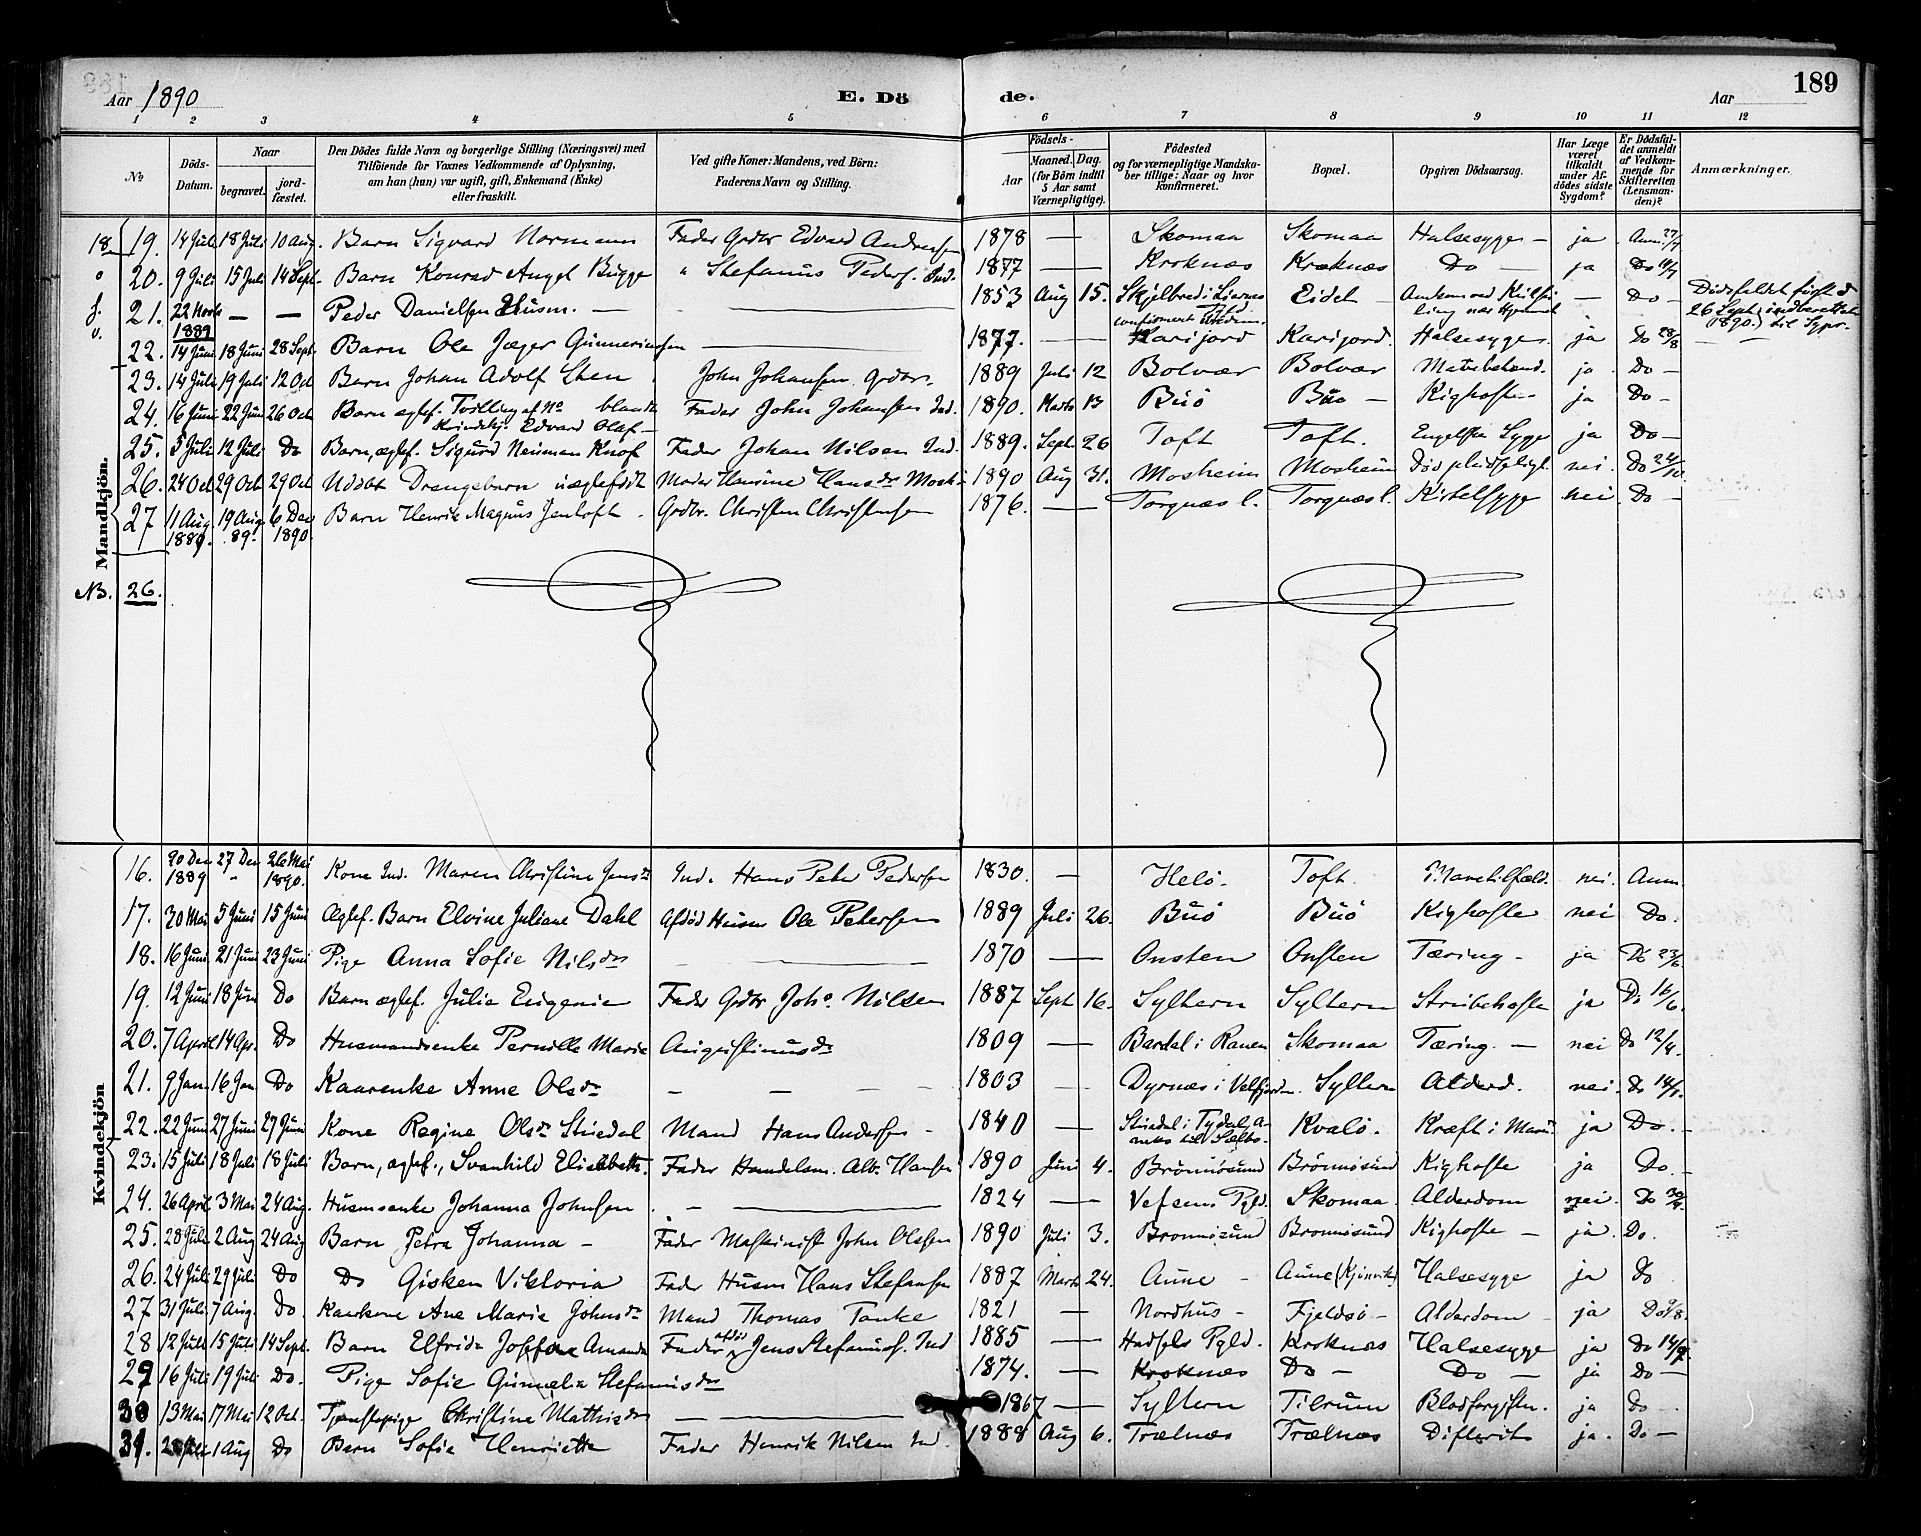 189
Aar 1890 E. Dö de. Aar
1 2 3 4 5 6 7 8 9 10 11 12
No
Döds-Datum.
Naar
begravet.
jord-fæstet.
Den Dödes fulde Navn og borgerlige Stilling (Næringsvei) med
Tilföiende for Voxnes Vedkommende af Oplysning,
om han (hun) var ugift, gift, Enkemand (Enke)
eller fraskilt.
Ved gifte Koner: Mandens, ved Börn:
Faderens Navn og Stilling.
Födsels-
Aar
Maaned. Dag.
(for Börn indtil
5 Aar samt
Værnepligtige).
Födested
og for værnepligtige Mandska-
ber tillige: Naar og hvor
konfirmeret.
Bopæl.
Opgiven Dödsaarsag.
Har Læge
været
tilkaldt
under Af-
dödes sidste
Sygdom?
Er Dödsfal-
det anmeldt
af Vedkom-
mende for
Skifteretten
(Lensman-
den)?
Anmærkninger.
Mandkjön.
18 19. 14 Juli 18 Juli 10 Aug. Barn Sigvard Normann Fader Grdbr Edvard Andersen 1878 — Skomaa Skomaa Halsesyge — ja Anm. 27/7
20. 9 Juli 15 Juli 14 Sept. Barn Konrad Angel Bugge " Stefanus Peders. Ind. 1877 — Kroknæs Kroknæs Do — ja Do 11/7
21. 22 Novb 1889 — — Peder Danielsen Husm. — 1853 Aug 15. Eidet — — Do — Dödsfaldet först d
26 Sept. indberettet
1890.) til
22. 14 Juni 18 Juni 28 Sept. Barn Ole Jæger Gunneriussen — 1877. — Karijord Karijord. Halsesyge. ja Do 28/8
23. 14 Juli 19 Juli 12 Oct Barn Johan Adolf Sten John Johansen Grdbr. 1889 Juli 12 Bolvær Bolvær ja Do —
24. 16 Juni 22 Juni 26 Oct Barn ægtef. Tvilling af No blandt
Kvindekj. Edvard Olaf — Fader John Johansen Ind. 1890. Marts 13 Buö Buö — Kighoste ja Do —
25. 5 Juli 12 Juli Do Barn, ægtef. Sigurd Neuman Knof Fader Johan Nilsen Ind. 1889. Sept 26 Toft Toft. Engelske Syge ja Do —
26. 24 Oct 29 Oct 29 Oct Udöbt Drengebarn uægtefödt Moder Hansine Hansdr Mosh. 1890 Aug 31. Mosheim Mosheim Död pludseligt nei. Do 24/10.
27 11 Aug 1889. 19 Aug. 89. 6 Dec 1890. Barn Henrik Magnus Jentoft. Grdbr. Christen Christensen 1876. — Torgnæs l. Torgnæs l. Kirtelsyge nei Do —
NB. 26.
Kvindekjön
16. 20 Dec 1889 27 Dec " 26 Mai 1890. Kone Ind. Maren Christine Jensdr Ind. Hans Peter Pedersen 1830. — Helö. Toft. Mavetilfæld. nei. Anm.
17. 30 Mai 5 Juni 15 Juni Ægtef. Barn Elvine Juliane Dahl Afdöd Husm Ole Petersen 1889 Juli 26. Buö Buö Kighoste nei Do.
18. 16 Juni 21 Juni 23 Juni Pige Anna Sofie Nilsdr — 1870 — Onsten Onsten Tæring — ja Do 23/6.
19. 12 Juni 18 Juni Do Barn ægtef. Julie Eugenie Fader Grdbr Johs. Nilsen 1887 Sept 16. Syltern Syltern Strubehoste ja Do 16/6.
20. 7 April 14 Apr. Do Husmandsenke Pernille Marie Augustinusdr 1809 — Bardal i Ranen Skomaa Tæring. — nei Do 12/4.
21. 9 Jan. 16 Jan. Do Kaarenke Anne Olsdr — — 1803 — Dyrnæs i Velfjorden. Syltern Alderd. nei. Do 14/1.
22. 22 Juni 27 Juni 27 Juni Kone Regine Olsdr Stuedal Mand Hans Andersen — 1840 — Stuedal i Tydal, A-
neks til Selbo. Kvalö. Kræft i ja Do. —
23. 15 Juli 18 Juli 18 Juli Barn, ægtef., Svanhild Elisabeth. Fader Handelsm. Alb. Hansen 1890 Juni 4. Brönnösund Brönnösund Kighoste ja Do. —
24. 26 April 3 Mai 24 Aug. Husmsenke Johanna Johnsen — 1824 — Vefsens Pgld. Skomaa. Alderdom nei. Do 30/4.
25. 28 Juli 2 Aug 24 Aug Barn Petra Johanna — Fader Maskinist John Olssen 1890 Juli 3. Bronnösund Bronnösund Kighoste — ja. Do.
26. 24 Juli 29 Juli Do Do Gisken Viktoria Fader Husm Hans Stefansen 1887 Marts 24. Aune — Aune (Kjinvik) Halsesyge ja Do
27 31 Juli 7 Aug. Do. Kaarkone Ane Marie Johnsdr Mand Thomas Tanke 1821 — Nordhus — Fjeldsö — Alderdom — ja Do 9/8.
28 12 Juli 15 Juli 14 Sept. Barn Elfrida Josefine Amanda Fader afdöd Jens Stefanusf. Ind 1885 — Hadsels Pgld. Kroknæs Halsesyge ja Do 14/7.
29 16 Juli 19 Juli Do. Pige Sofie Gunnelia Stefanusdr 1874. — Kroknæs Do — Do — ja Do —
30 13 Mai 17 Mai 12 Oct. Tjenstepige Christine Mathisdr — 1867 — Syltern Tilrum Blodforgiftn. ja Do —
31. 1 Aug Do Barn Sofie Henriette Fader Henrik Nilsen Ind. 1888 Aug 6. Trælnæs Trælnæs Difterit ja. Do —